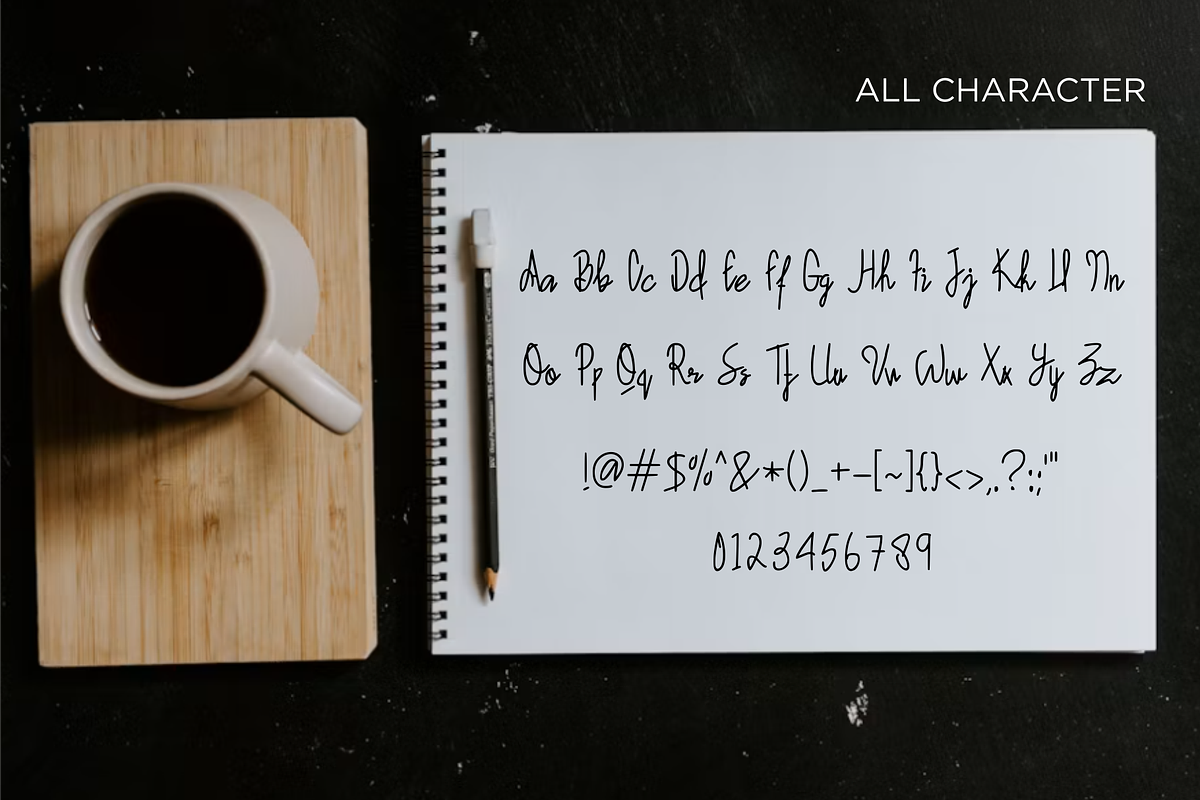 ALL CHARACTER
Aa Bb Cc Dd Ee Ff Gg Hh Ii Jj Kk Ll Nn
Oo Pp Qq Rr Ss Tt Uu Vv Ww Xx Yy Zz
!@#$%^&*()_+-[~]{}<>,.?:;'"
0123456789